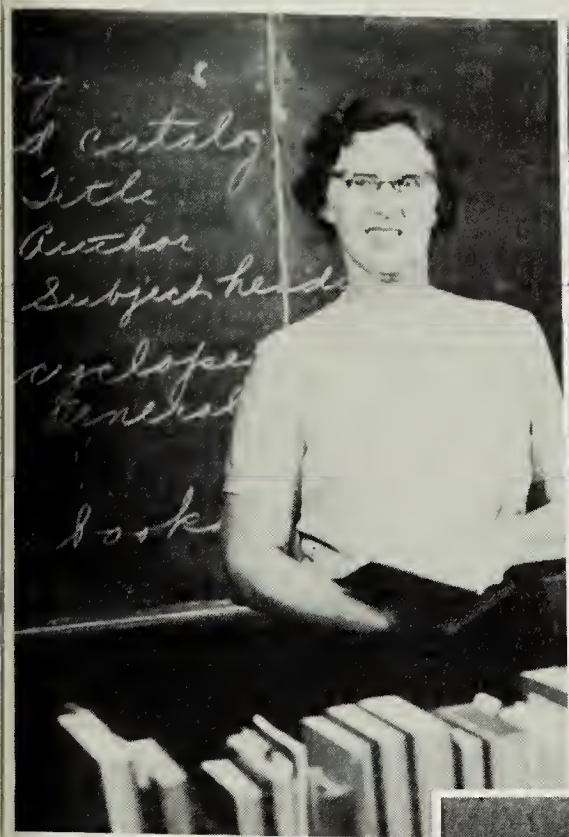 ry
d catalog
Title
Author
Subject head
cyclope
General
book